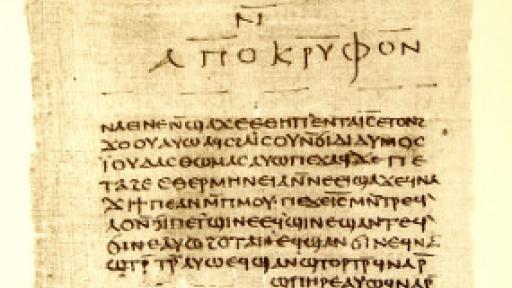 ⲛ̄
ⲁⲡⲟⲕⲣⲩⲫⲟⲛ
ⲛⲁⲉⲓⲛⲉⲛ̄ϣⲁϫⲉⲉⲑⲏⲡⲉⲛⲧⲁⲓ̅ⲥ̅ⲉⲧⲟⲛϩ
ϫⲟⲟⲩⲁⲩⲱⲁϥⲥϩⲁⲓⲥⲟⲩⲛ̄ϭⲓⲇⲓⲇⲩⲙⲟⲥ
ⲓ̈ⲟⲩⲇⲁⲥⲑⲱⲙⲁⲥⲁⲩⲱⲡⲉϫⲁϥϫⲉⲡⲉ
ⲧⲁϩⲉⲉⲑⲉⲣⲙⲏⲛⲉⲓⲁⲛ̄ⲛⲉⲉⲓϣⲁϫⲉϥⲛⲁ
ϫⲓϯⲡⲉⲁⲛⲙ̄ⲡⲙⲟⲩⲡⲉϫⲉⲓ̅ⲥ̅ⲙⲛ̄ⲧⲣⲉϥ
ⲗⲟⲛ̄ϭⲓⲡⲉⲧϣⲓⲛⲉⲉϥϣⲓⲛⲉϣⲁⲛⲧⲉϥ
ϭⲓⲛⲉⲁⲩⲱϩⲟⲧⲁⲛⲉϥϣⲁⲛϭⲓⲛⲉϥⲛⲁ
ϣⲧⲣ̄ⲧⲣ̄ⲁⲩⲱⲉϥϣⲁⲛϣⲧⲟⲣⲧⲣ̄ϥⲛⲁⲣ̄
ϣⲡⲏⲣⲉⲁⲩⲱϥⲛⲁⲣ̄